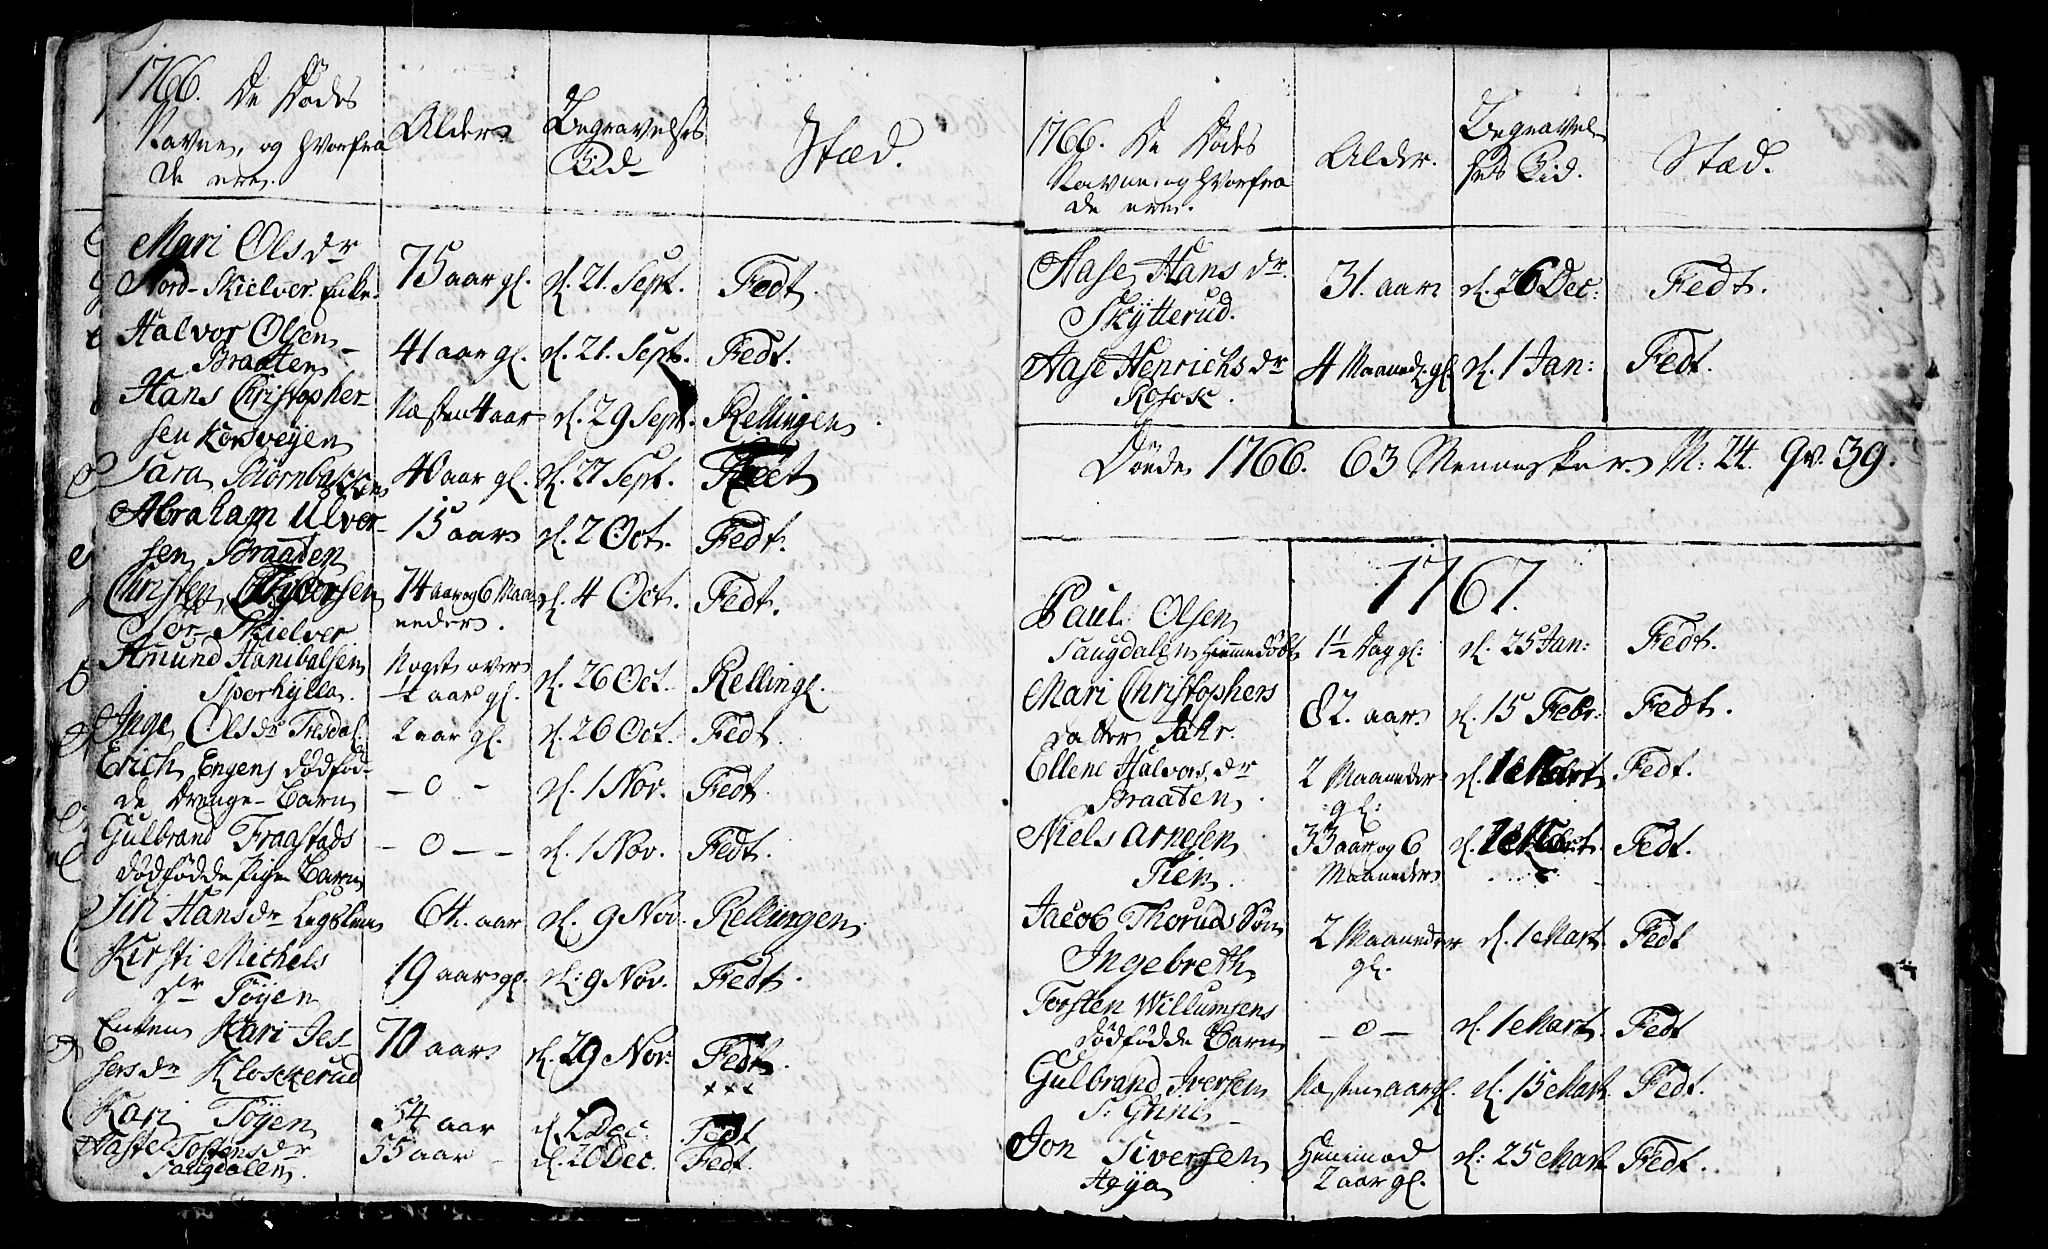 1766. De Dödes
Navne, og hvorfra
de ere.
Alder.
Begravelses
Tid
Stæd.
Mari Olsdr
Nord-Skielver Enke. 75 aar gl. d. 21. Sept. Fedt.
Halvor Olsen
Braaten 41 aar gl. d. 21. Sept. Fedt.
Hans Christopher
sen Korsveyen Næsten 4 aar d. 29 Sept. Rellingen.
Sara Biörnbakken 40 aar gl. d. 27 Sept. Fedt
Abraham Ulver-
sen Braaten 15 aar d. 2 Oct. Fedt.
Christen
Sör-Skielver 74 aar og 6 Maa
neder. d. 4 Oct. Fedt.
Amund Hanibalsen
Sporhylla. Noget over
1/2 aar gl. d. 26 Oct. Relling.
Inge Olsdr 2 aar gl. d. 26 Oct. Fedt.
Erich Engens dödföd-
de Drenge-Barn - 0 - d. 1 Nov. Fedt.
Gulbrand Fraastads
dödfödde Pige Barn - 0 - - d. 1 Nov. Fedt.
Siri Hansdr 64. aar d. 9 Nov. Rellingen.
Kirsti Michels
dr Töyen 19 aar gl. d: 9 Nov. Fedt.
Enken Kari Jes-
sers dr Klockerud 70 aar d. 29 Nov: Fedt.
xxx
Kari Töyen 54 aar d. Dec: Fedt
Aaste Tostensdr
Saugdalen. 55 aar d. 20 Dec. Fedt.
1766. De Dödes
Navne, og hvorfra
de ere.
Alder.
Begravel-
ses Tid.
Stæd.
Aase Hans dr.
Skÿtterud. 31. aar d. 26 Dec: Fedt.
Aase Henrichs dr
Rosok. 4 Maaned. gl. d. 1 Jan: Fedt.
Döde 1766. 63 Mennesker. M: 24. Qv. 39.
1767.
Paul Olsen
Saugdalen Hiemmedöbt 1 1/2 Dag gl: d. 25 Jan: Fedt.
Mari Christophers
datter Fahr. 82. aar d. 15 Febr: Fedt.
Ellene Halvors, dr
Braaten. 2 Maaneder
gl: d. 1 Mart. Fedt.
Niels Arnesen
Tien. 33 aar og 6
Maaneder d. 1 Mart. Fedt.
Jacob Thoruds Sön
Ingebreth 2 Maaneder
gl. d. 1 Mart. Fedt
Torsten Willumsens
dödfödde Barn - 0 - d. 1 Mart. Fedt
Gulbrand Iversen
Næsten aar gl. d. 15 Mart. Fedt.
Jon Siversen
Høÿa Henimod
2 aar gl. d: 25 Mart. Fedt.